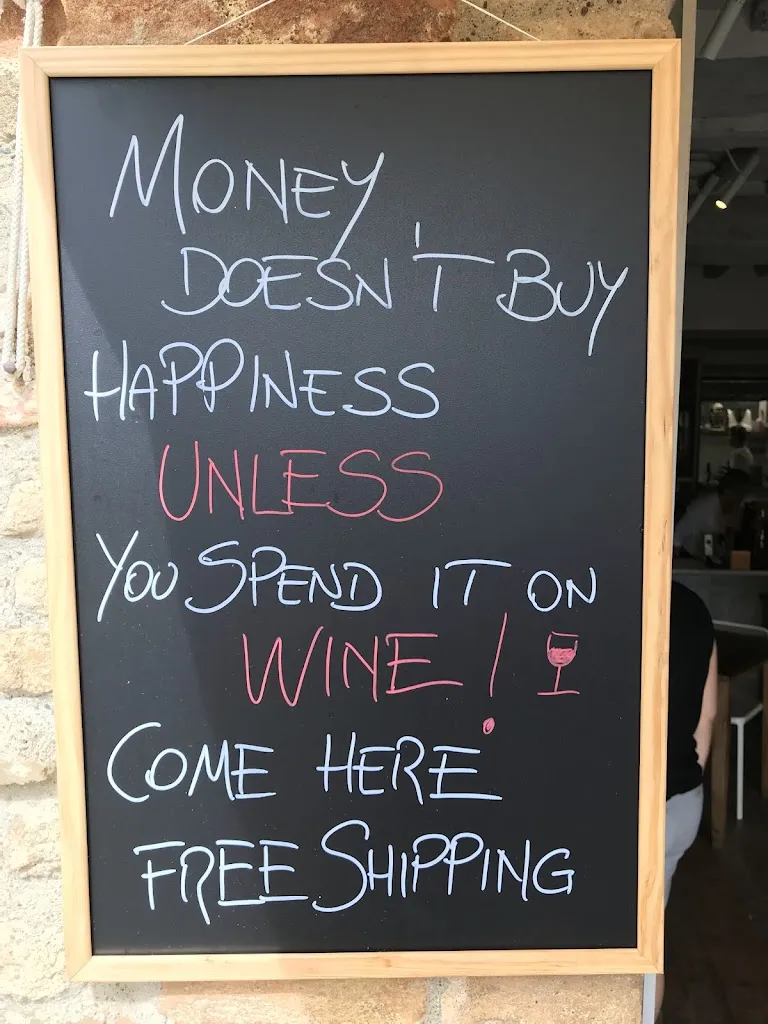 MONEY
DOESN'T BUY
HAPPINESS
UNLESS
YOU SPEND IT ON
WINE!
COME HERE
FREE SHIPPING